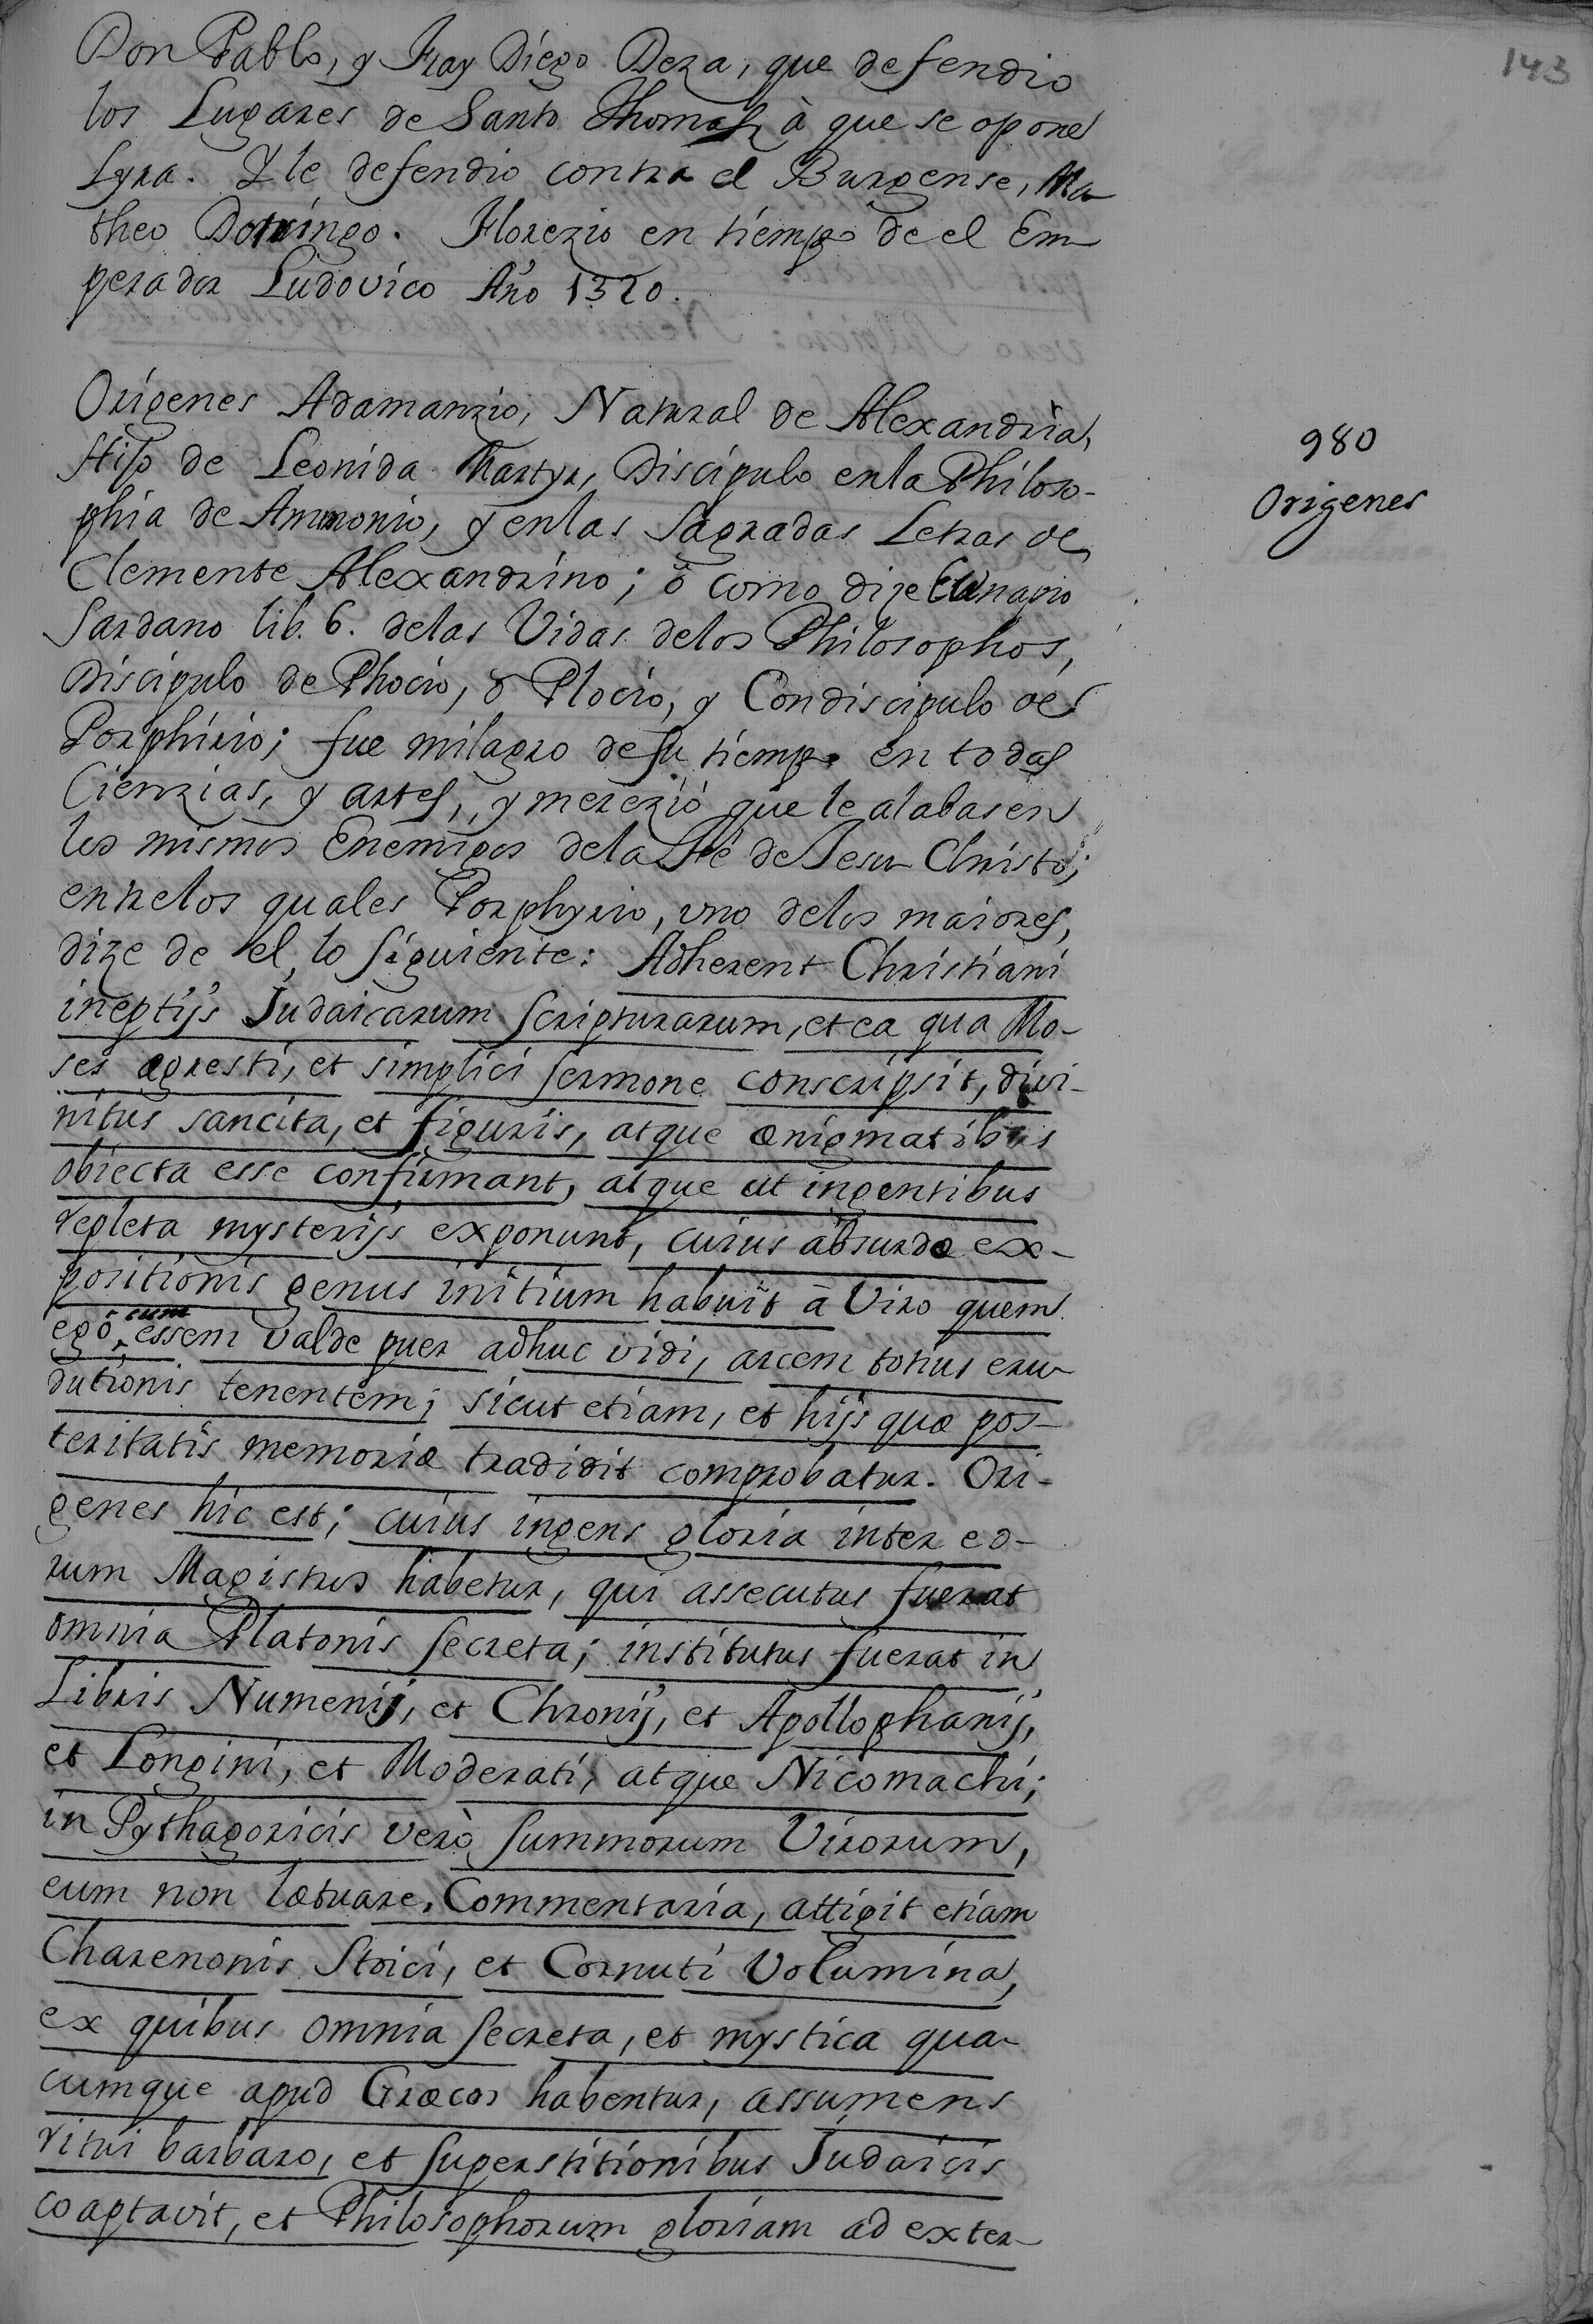 143
Don Pablo, y Fray Diego Deza, que defendio
los Lugares de Santo Thomas à que se opone
Lyra. Y le defendio contra el Burgense, Ma-
theo Doringo. Florezio en tiempo de el Em-
perador Ludovico Año 1320.
980
Origenes
Origenes Adamanzio, Natural de Alexandria,
Hijo de Leonida Martyr, Discipulo en la Philoso-
phia de Ammonio, y en las Sagradas Letras de
Clemente Alexandrino; ò como dize Eunapio
Sardano lib. 6. delas Vidas delos Philosophos,
Discipulo de Phocio, ò Plocio, y Condiscipulo de
Porphirio; fue milagro de su tiempo en todas
Cienzias, y artes, y merezió que le alabasen
los mismos Enemigos dela Fé de Jesu Christo;
entrelos quales Porphyrio, uno delos maiores,
dize de el, lo siguiente: Adherent Christiani
ineptijs Judaicarum Scripturarum, et ea qua Mo-
ses agresti, et simplici sermone conscripsit, divi-
nitus sancita, et figuris, atque ænigmatibus
obiecta esse confirmant, atque ut ingentibus
repleta mysterijs exponunt, cuius absurdæ ex-
positionis genus initium habuit à Viro quem
ego, cum essem valde puer adhuc vidi, arcem totius eru-
ditionis tenentem; sicut etiam, et hijs quæ pos-
teritatis memoriæ tradidit comprobatur. Ori-
genes hic est; cuius ingens gloria inter eo-
rum Magistros habetur, qui assecutus fuerat
omnia Platonis secreta; institutus fuerat in
Libris Numenij, et Chronij, et Apollophanij,
et Longini, et Moderati, atque Nicomachi;
in Pythagoricis verò summorum Virorum,
eum non latuare Commentaria, attigit etiam
Charenonis Stoici, et Cornuti Volumina,
ex quibus omnia secreta, et mystica qua-
cumque apud Græcos habentur, assumens
ritui barbaro, et superstitionibus Judaicis
coaptavit, et Philosophorum gloriam ad exter-